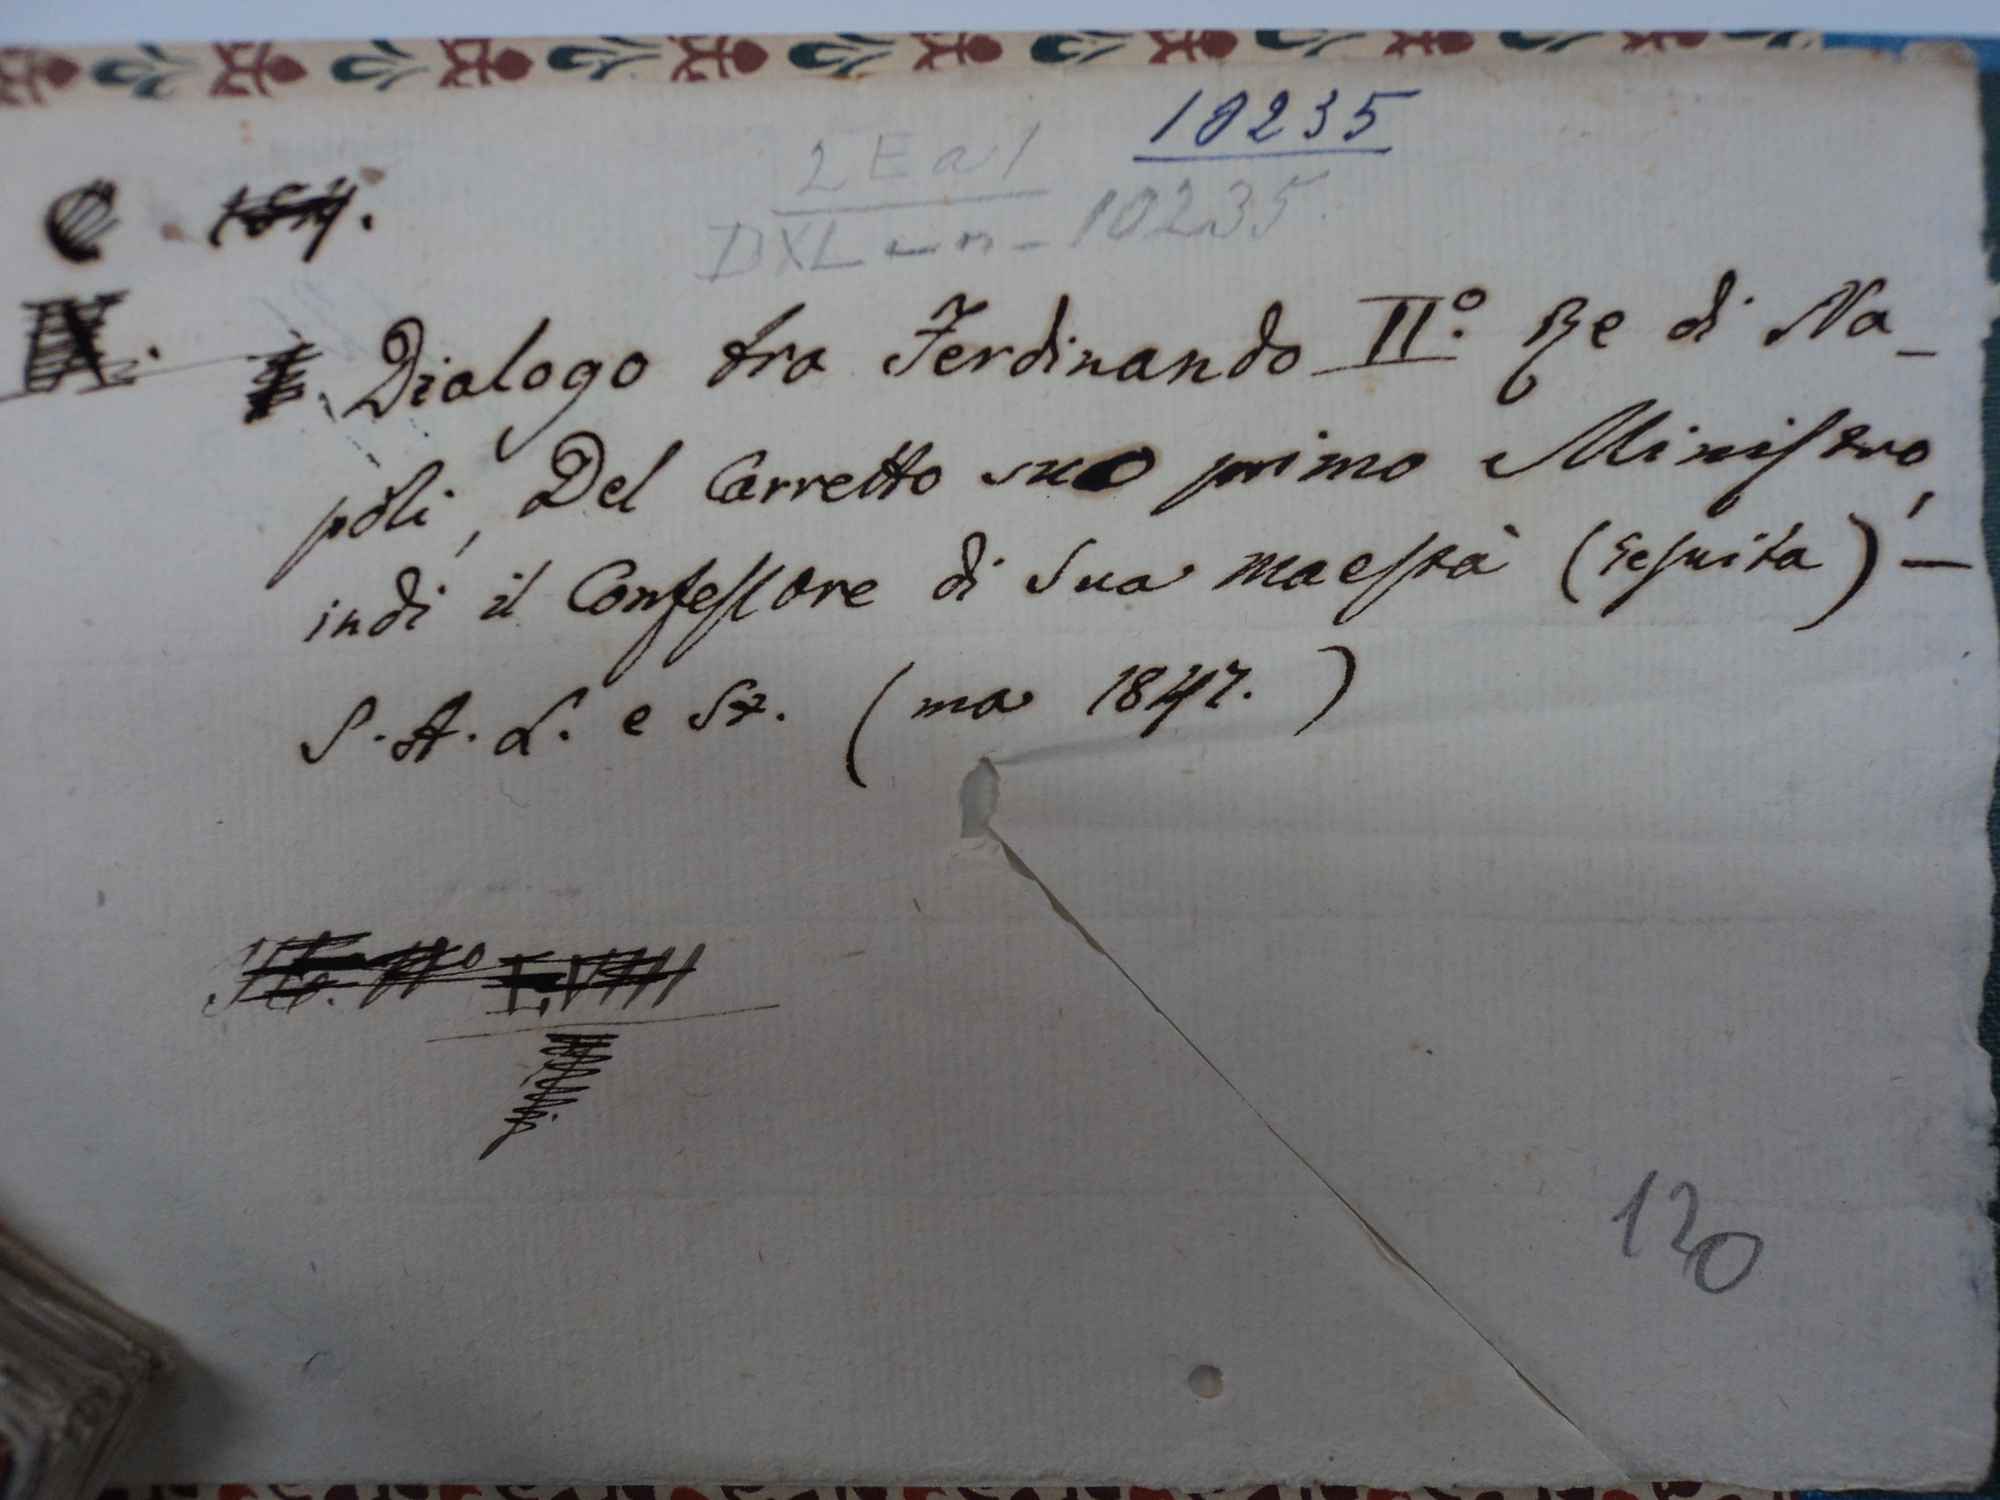 10235
2 E a 1
DXL - n - 10235.
Dialogo tra Ferdinando II.º Re di Na_
poli, Del Carretto suo primo Ministro,
indi il Confessore di Sua maestà (Gesuita) —
S. A. L. e St. (ma 1847.)
120